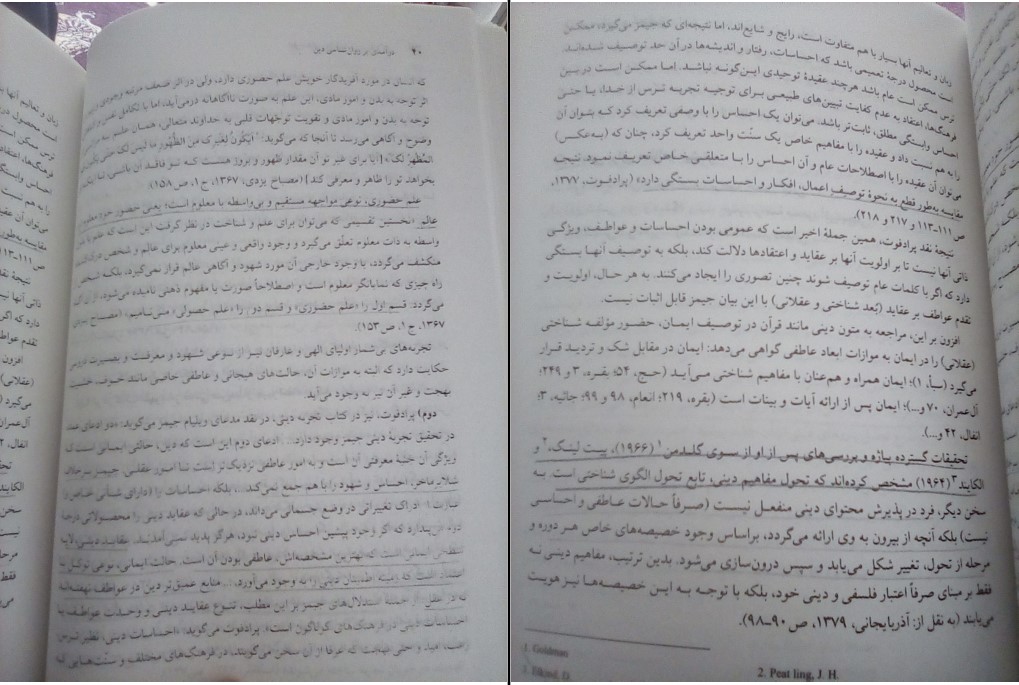 ۴۰ درآمدی بر روان‌شناسی دین
که انسان در مورد آفریدگار خویش علم حضوری دارد، ولی در اثر ضعف مرتبه وجودی و نیز
اثر توجه به بدن و امور مادی، این علم به صورت ناآگاهانه درمی‌آید، اما با تکامل نفس و کاهش
توجه به بدن و امور مادی، و تقویت توجهات قلبی به خداوند متعالی، همان علم به مرتبه‌ای از
وضوح و آگاهی می‌رسد تا آنجا که می‌گوید: «أیَکُونُ لِغَیرِکَ مِنَ الظُّهُور مَا لَیسَ لَکَ حتی یکُونَ هو
المُظهِرَ لَکَ» [آیا برای غیر تو آن مقدار ظهور و بروز هست که تو فاقد آن باشی، تا اینکه
بخواهد تو را ظاهر و معرفی کند] (مصباح یزدی، ۱۳۶۷، ج ۱، ص ۱۵۸).
علم حضوری، نوعی مواجهه مستقیم و بی‌واسطه با معلوم است؛ یعنی حضور خود معلوم
عالِم «نخستین تقسیمی که می‌توان برای علم و شناخت در نظر گرفت این است که علم یا بدون
واسطه به ذات معلوم تعلّق می‌گیرد و وجود واقعی و عینی معلوم برای عالِم و شخص درک‌کننده
منکشف می‌گردد، یا وجود خارجی آن مورد شهود و آگاهی عالِم قرار نمی‌گیرد، بلکه شخص از
راه چیزی که نمایانگر معلوم است و اصطلاحاً صورت یا مفهوم ذهنی نامیده می‌شود، از آن آگاه
می‌گردد. قسم اول را «علم حضوری» و قسم دوم را «علم حصولی» می‌نامیم» (مصباح یزدی،
۱۳۶۷، ج ۱، ص ۱۵۳).
تجربه‌های بی‌شمار اولیای الهی و عارفان نیز از نوعی شهود و معرفت و بصیرت درونی
حکایت دارد که البته به موازات آن، حالت‌های هیجانی و عاطفی خاصی مانند خوف، خشیت
بهجت و غیر آن نیز به وجود می‌آید.
دوم) پرادفوت، نیز در کتاب تجربه دینی، در نقد مدعای ویلیام جیمز می‌گوید: «دو ادعای عمده
در تحقیق تجربهٔ دینی جیمز وجود دارد... ادعای دوم این است که دین، حالتی ایمانی است که
ویژگی آن جنبهٔ معرفتی آن است و به امور عاطفی نزدیک‌تر است تا امور عقلی. جیمز برخلاف
شلایرماخر، احساس و شهود را با هم جمع نمی‌کند...، بلکه احساسات را (دارای شأنی خاص و)
عبارت از ادراک تغییراتی در وضع جسمانی می‌داند، در حالی که عقاید دینی را محصولاتی درجهٔ
دوم می‌پندارد که اگر وجود پیشین احساس دینی نبود، هرگز پدید نمی‌آمدند. عقاید دینی، لایه
سطحی ایمانی است که مهم‌ترین مشخصه‌اش، عاطفی بودن آن است. حالت ایمانی، نوعی توکل یا
اعتماد است که زمینه اطمینان دینی را به وجود می‌آورد،... منابع عمیق‌تر دین در عواطف نهفته‌اند
نه در عقل. از جمله استدلال‌های جیمز بر این مطلب، تنوع عقاید دینی و وحدت عواطف یا
احساسات دینی در فرهنگ‌های گوناگون است». پرادفوت می‌گوید: «احساسات دینی، نظیر ترس
رجب، امید و حتی فهمت که عرفا از آن سخن می‌گویند، در فرهنگ‌های مختلف و سنّت‌هایی که
زبان و تعالیم آنها بسیار با هم متفاوت است، رایج و شایع‌اند، اما نتیجه‌ای که جیمز می‌گیرد، ممکن
است محصول درجهٔ تعمیمی باشد که احساسات، رفتار و اندیشه‌ها در آن حد توصیف شده‌اند.
ترس ممکن است عام باشد هرچند عقیدهٔ توحیدی این‌گونه نباشد. اما ممکن است در بین
فرهنگ‌ها، اعتقاد به عدم کفایت تبیین‌های طبیعی برای توجیه تجربه ترس از خدا، یا حتی
احساس وابستگی مطلق، ثابت‌تر باشد. می‌توان یک احساس را با وصفی تعریف کرد که بتوان آن
را به هم نسبت داد و عقیده را با مفاهیم خاص یک سنّت واحد تعریف کرد، چنان که (به‌عکس)
می‌توان آن عقیده را با اصطلاحات عام و آن احساس را با متعلقی خاص تعریف نمود. نتیجه
مقایسه به‌طور قطع به نحوهٔ توصیف اعمال، افکار و احساسات بستگی دارد» (پرادفوت، ۱۳۷۷،
ص ۱۱۱-۱۱۳ و ۲۱۷ و ۲۱۸).
نتیجهٔ نقد پرادفوت، همین جملهٔ اخیر است که عمومی بودن احساسات و عواطف، ویژگی
ذاتی آنها نیست تا بر اولویت آنها بر عقاید و اعتقادها دلالت کند، بلکه به توصیف آنها بستگی
دارد که اگر با کلمات عام توصیف شوند چنین تصوری را ایجاد می‌کنند. به هر حال، اولویت و
تقدم عواطف بر عقاید (بُعد شناختی و عقلانی) با این بیان جیمز قابل اثبات نیست.
افزون بر این، مراجعه به متون دینی مانند قرآن در توصیف ایمان، حضور مؤلفه شناختی
(عقلانی) را در ایمان به موازات ابعاد عاطفی گواهی می‌دهد: ایمان در مقابل شک و تردید قرار
می‌گیرد (سبأ، ۱)؛ ایمان همراه و هم‌عنان با مفاهیم شناختی می‌آید (حج، ۵۴؛ بقره، ۳ و ۲۴۹؛
آل‌عمران، ۷۰ و...)؛ ایمان پس از ارائه آیات و بینات است (بقره، ۲۱۹؛ انعام، ۹۸ و ۹۹؛ جاثیه، ۳؛
انفال، ۴۲ و...).
تحقیقات گسترده پیاژه و بررسی‌های پس از او از سوی گلدمن۱ (۱۹۶۶)، پیت لینگ،۲ و
الکایند۳ (۱۹۶۴) مشخص کرده‌اند که تحول مفاهیم دینی، تابع تحول الگوی شناختی است. به
سخن دیگر، فرد در پذیرش محتوای دینی منفعل نیست (صرفاً حالات عاطفی و احساسی
نیست) بلکه آنچه از بیرون به وی ارائه می‌گردد، براساس وجود خصیصه‌های خاص هر دوره و
مرحله از تحول، تغییر شکل می‌یابد و سپس درون‌سازی می‌شود. بدین ترتیب، مفاهیم دینی نه
فقط بر مبنای صرفاً اعتبار فلسفی و دینی خود، بلکه با توجه به این خصیصه‌ها نیز هویت
می‌یابند (به نقل از: آذربایجانی، ۱۳۷۹، ص ۹۰-۹۸).
1. Goldman
2. Peat ling, J. H.
3. Elkind, D.